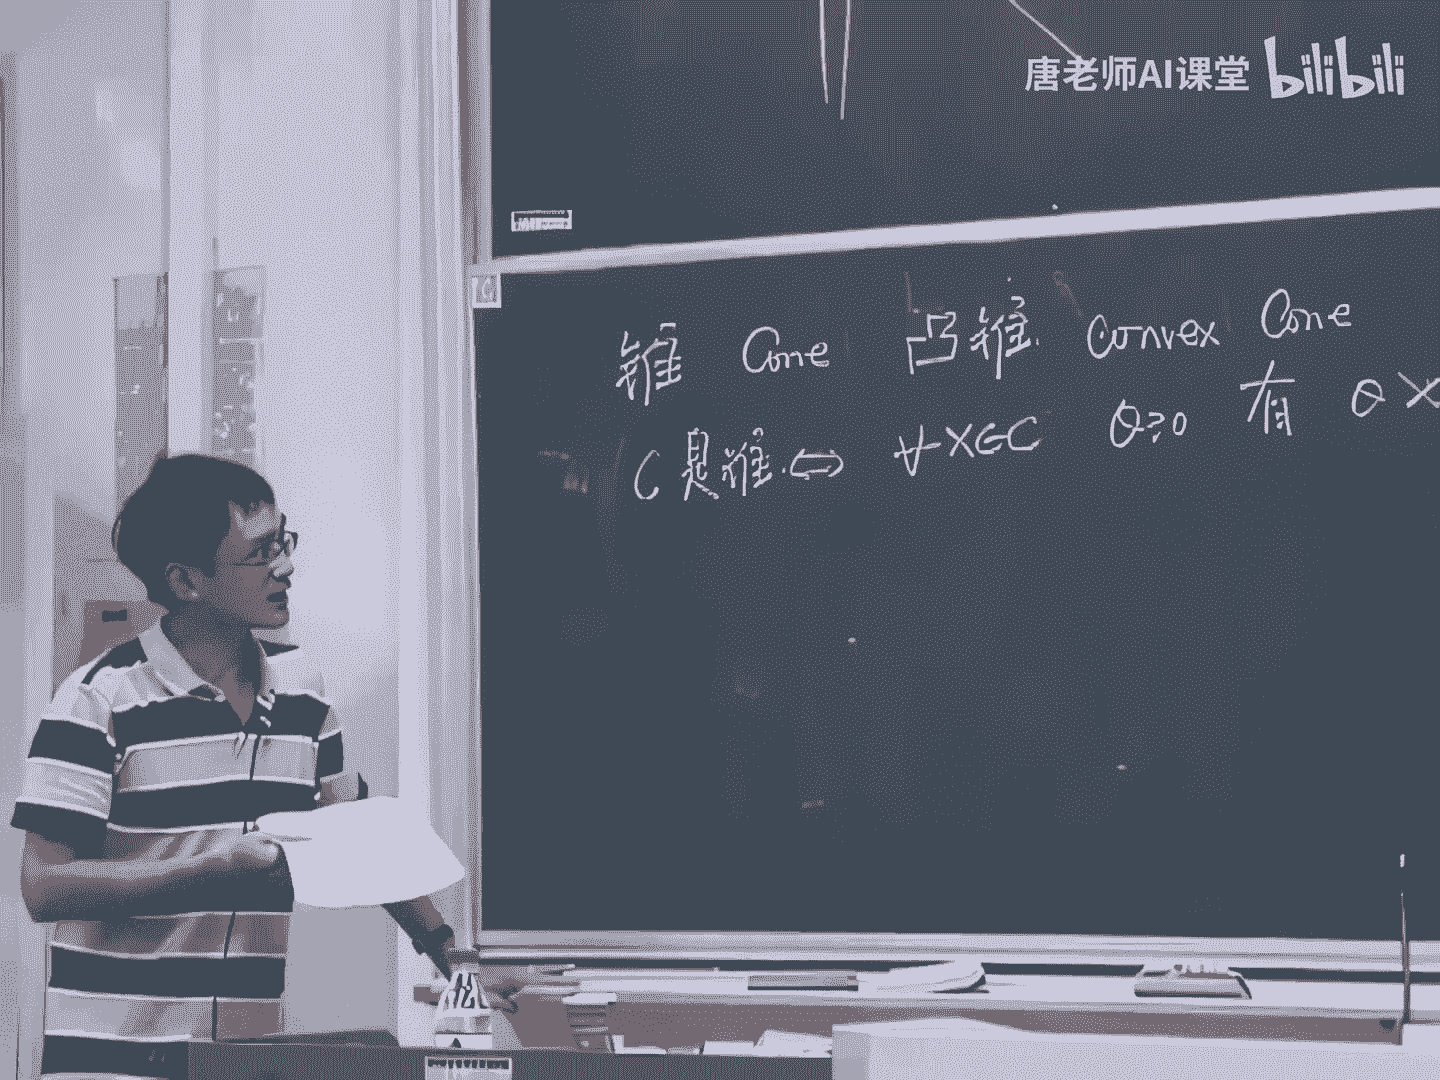 唐老师AI课堂 bilibili
锥 Cone 凸锥. Convex Cone
C 是锥. ⇔ ∀ X∈C θ≥0 有 θ X